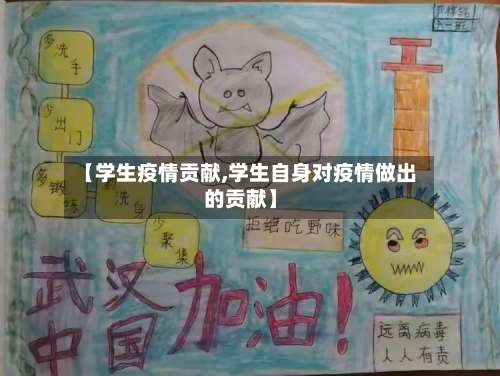 六一班
多洗手
少出门
多锻炼
勤洗身
少聚集
【学生疫情贡献,学生自身对疫情做出
的贡献】
拒绝吃野味
武汉加油!
中国
远离病毒
人人有责